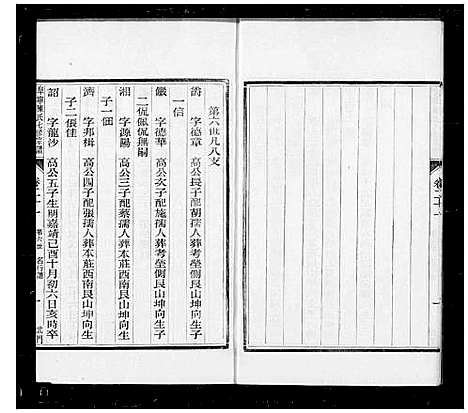 第六世凡八支
爵 字德章 高公長子配胡孺人葬考塋側艮山坤向生子
一信
儼 字德華 高公次子配施孺人葬考塋側艮山坤向生子
二侃侃無嗣
湘 字源陽 高公三子配蔡孺人葬本莊西南艮山坤向生
子一佃
濟 字邦楫 高公四子配張孺人葬本莊西南艮山坤向生
子二倀佳
韶 字龍沙 高公五子生明嘉靖己酉十月初六日亥時卒